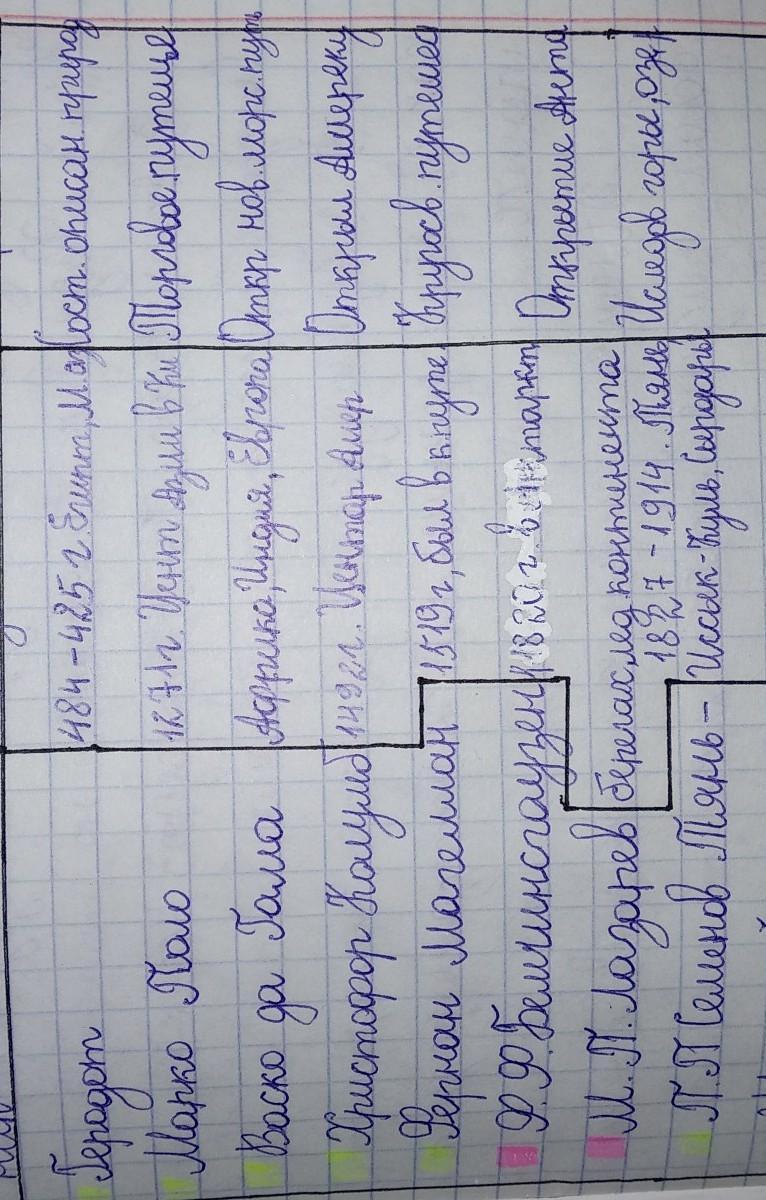 Геродот 484-425 г. Египт, Мал Сост. описан. природ
Марко Поло 1271г. Цент Азии в Ки Торговое путеше
Васко да Гама Африка, Индия, Европа Откр нов. морс. путь
Христофор Колумб 1492г. Центар. Амер Открыл Америку
Фернан Магеллан 1519г, был в к.путе. Кругосв. путешес
Ф.Ф. Беллинсгаузен 1820г. в Антаркт Открытие Анта
М.П. Лазарев берегах лед континента
1827-1914. Тянь Иследов горы, озер
П.П Семенов Тянь- Иссык-Куль, Сырдарья